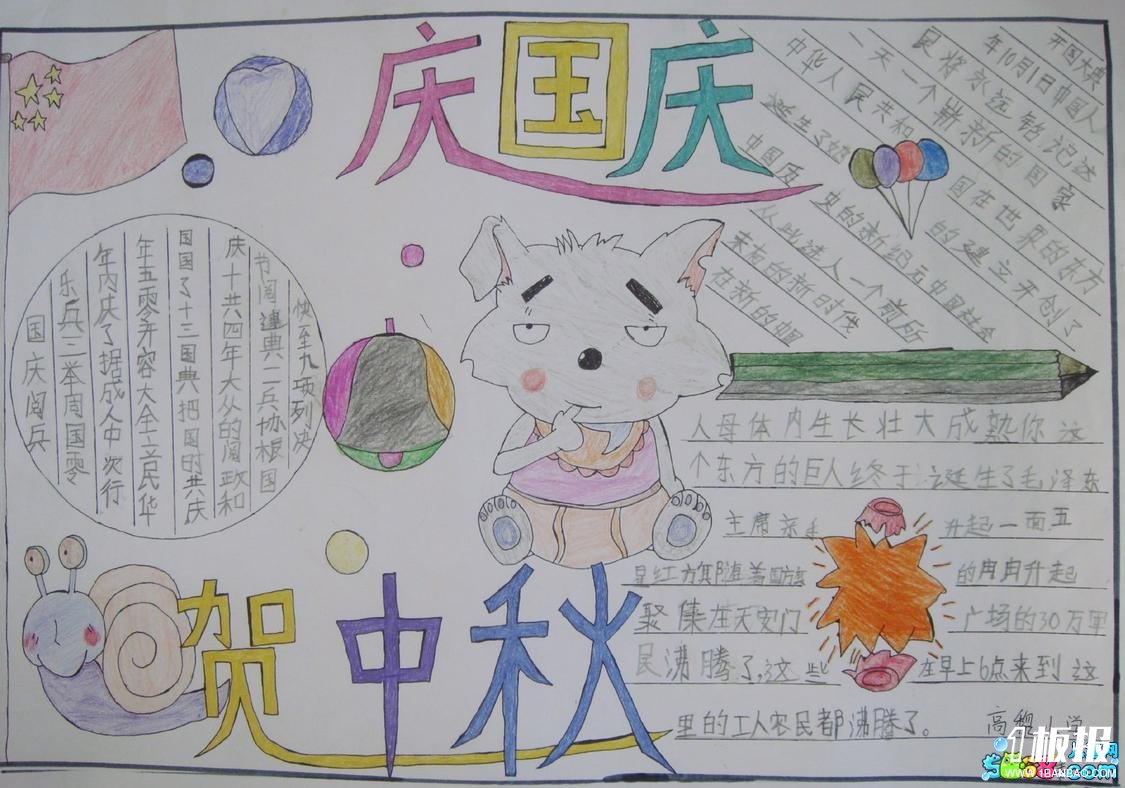 庆国庆
开国大典
年10月1日中国人
民将永远铭记这
一天一个崭新的国家
中华人民共和国在世界的东方
诞生了她的建立开创了
中国历史的新纪元中国社会
从此进入一个前所
未有的新时代
在新的
快至九项列决
节阅建典二兵协根国
庆十共四年大从的阅政和
国国了十三国典把国时共庆
年五零开容大全立民华
年内庆了据成人中次行
乐兵三举周国零
国庆阅兵
人母体内生长壮大成熟你这
个东方的巨人终于诞生了毛泽东
主席亲手升起一面五
星红方旗随着国旗的冉冉升起
聚集在天安门广场的30万里
民沸腾了,这些在早上6点来到这
里的工人农民都沸腾了。
贺中秋
小学
1板报
WWW.1BANBAO.COM